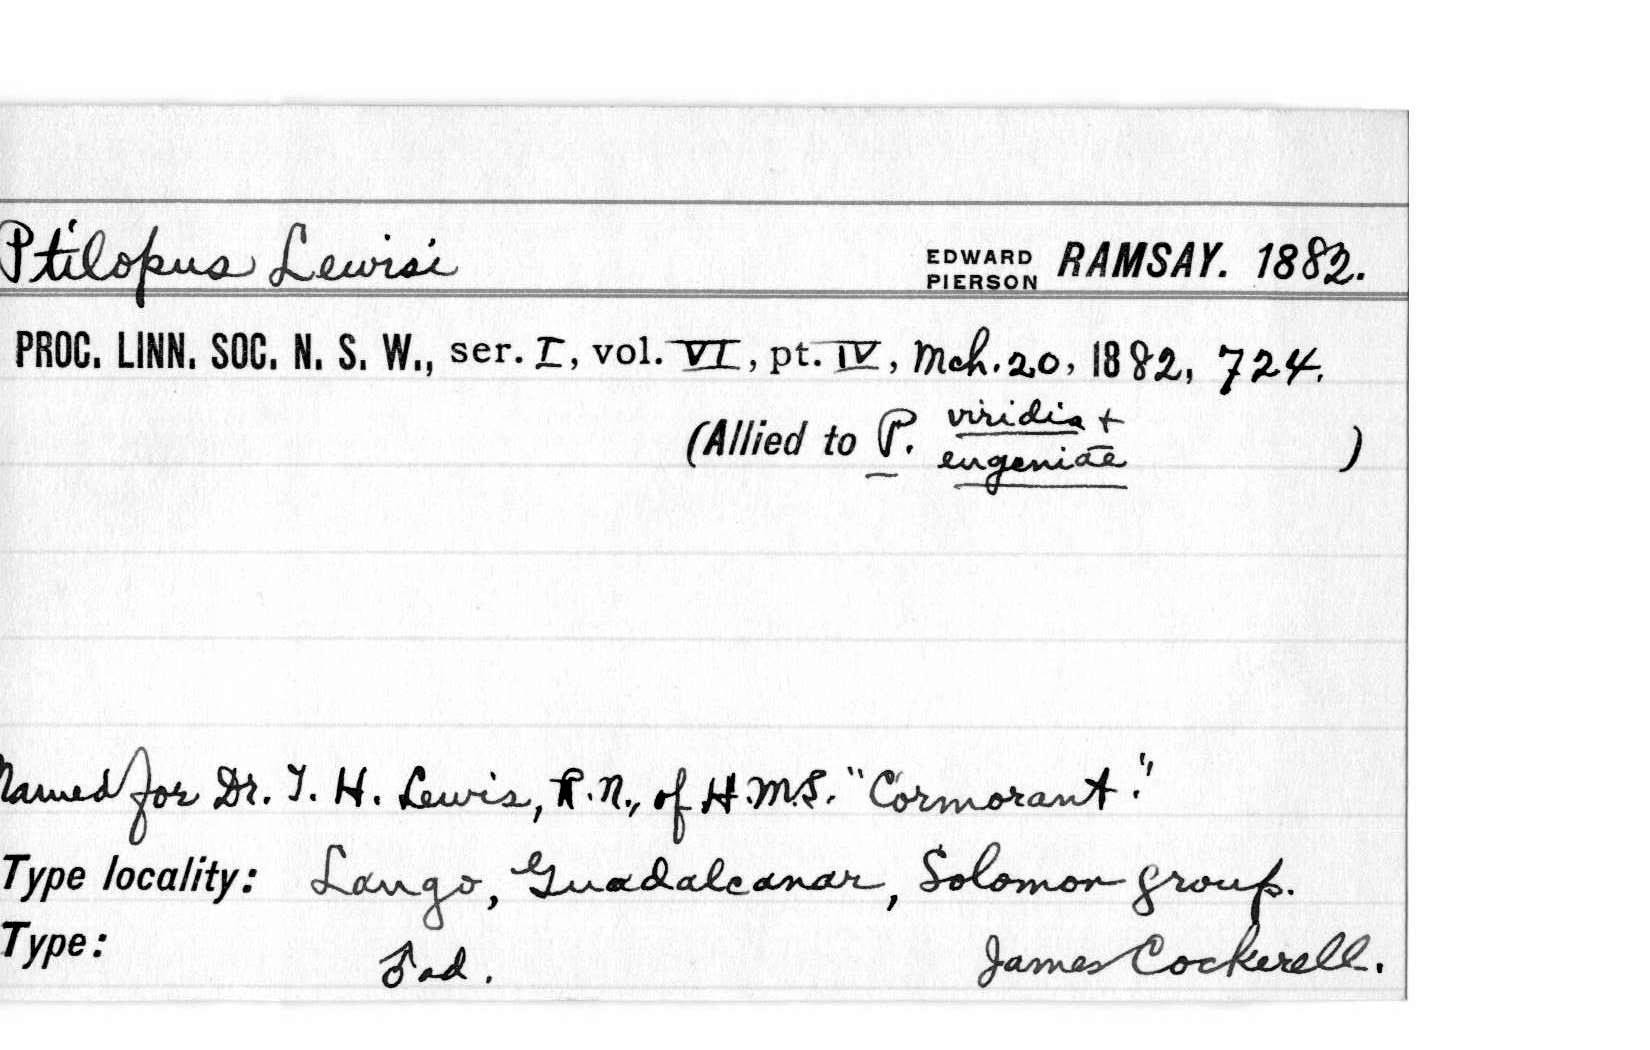 Ptilopus Lewisi EDWARD PIERSON RAMSAY. 1882.
PROC. LINN. SOC. N. S. W., ser. I, vol. VI, pt. IV, Mch. 20, 1882, 724.
(Allied to P. viridis + eugeniae )
Named for Dr. T. H. Lewis, R.N., of H.M.S. "Cormorant."
Type locality: Lango, Guadalcanar, Solomon group.
Type: ♂ ad. James Cockerell.